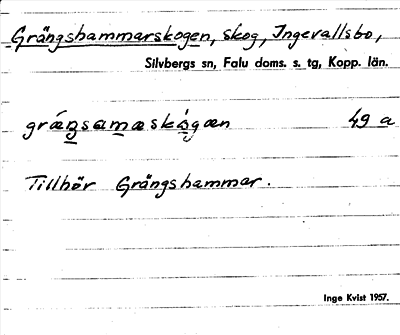 Grängshammarskogen, skog, Ingevallsbo,
Silvbergs sn, Falu doms. s. tg, Kopp. län.
49 a
Tillhör Grängshammar.
Inge Kvist 1957.